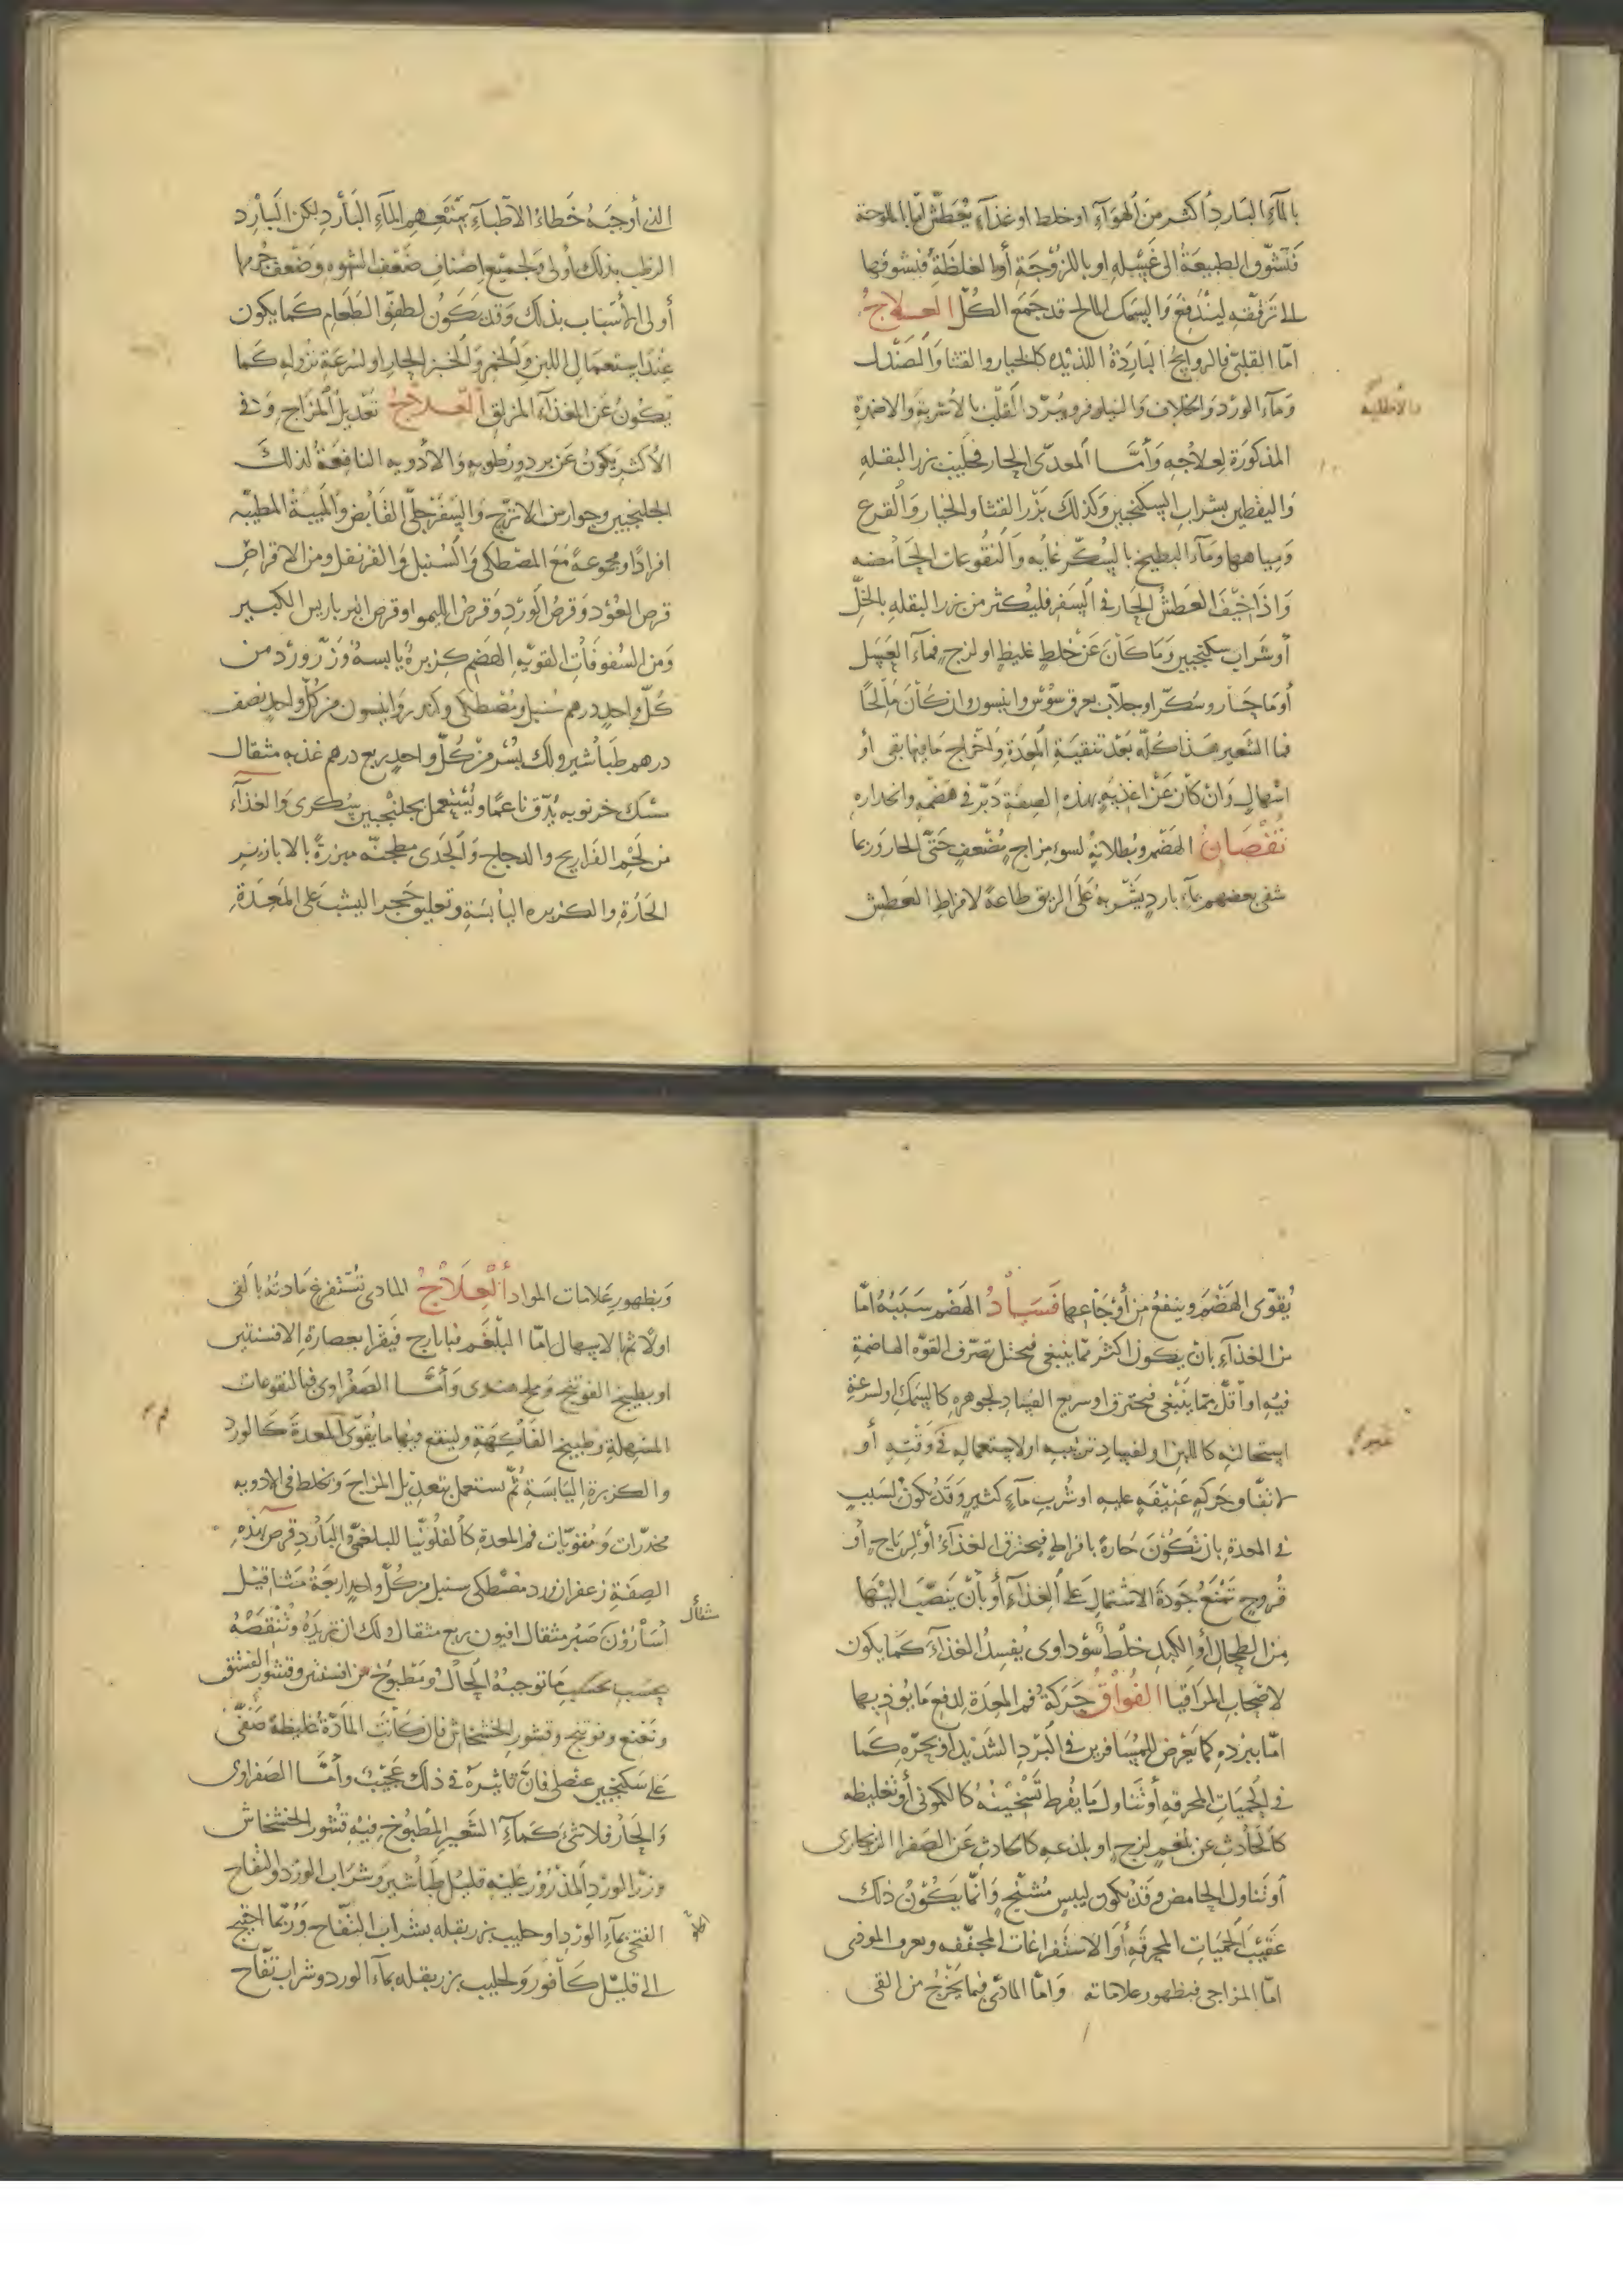 بالماء البارد أكثر من الهواء او خلط او غذاء يعطش اما بالملوحة
فتشوق الطبيعة الى غسله او باللزوجة أو الغلظة فتشوقها
الى ترقيقه ليندفع والسمك المالح قد جمع الكل العلاج
امّا القلبىّ فالروايح الباردة اللذيذه كالخيار والقثا والصندل
وماء الورد والخلاف والنيلوفر ويبرّد القلب بالأشربة والاضمدة
والأطلية
المذكورة لعلاجه وأمّا المعدّى الحار فحليب بزر البقله
واليقطين بشراب السكنجبين وكذلك بزر القثا والخيار والقرع
ومياهها وماء البطيخ بالسكّر غايه والنقوعات الحامضه
واذا خيف العطش الحار فى السفر فليكثر من بزر البقله بالخلّ
أو شراب سكنجبين وما كان عن خلط غليظ او لزج فماء العسل
أو ماء حار وسكّر او جلاّب بعرق سوس وانيسون وان كان مالحًا
فماء الشعير هذا كلّه بعد تنقية المعدة واخراج ما فيها بقى أو
اسهال وان كان عن اغذيه بهذه الصفة دبّر فى هضمه وانحداره
نقصان الهضم وبطلانه لسوء مزاج مُضْعف حتّى الحار وربما
شفى بعضهم بماء بارد يشربه على الريق طاعة لافراط العطش
الذى أوجبه خطاء الاطباء بمنعهم الماء البارد لكن البارد
الرطب بذلك أولى ولجميع اصناف ضعف الشهوه وضعف جرمها
أولى الأسباب بذلك وقد يكون لطفوّ الطعام كما يكون
عند استعمال اللبن والخمر والخبز الحار او لسرعة نزوله كما
يكون عن الغذاء المزلق العلاج تعديل المزاج وفى
الأكثر يكون عن برد ورطوبه والادويه النافعة لذلك
الجلنجبين وجوارش الاترج والسفرجلّى القابض والميبة المطيّبه
افرادًا ومجموعة مع المصطكى والسنبل والقرنفل ومن الاقراص
قرص العود وقرص الورد وقرص الليمو او قرص انبرباريس الكبير
ومن السفوفات المقويه الهضم كزبرة يابسة وزرّ ورد من
كلّ واحد درهم سنبل ومصطكى وكندر وانيسون من كلّ واحد نصف
درهم طباشير ولك بُسُر من كلّ واحد ربع درهم غذبه مثقال
سُك خرنوبه يدق ناعمًا ويستعمل بجلنجبين سكرى والغذاء
من لحم الفراريج والدجاج والجدى مطجنّه مبزرة بالابازير
الحارة والكزبره اليابسة وتعليق حجر اليشب على المعدة
يُقوّى الهضم وينفع من أوجاعها فساد الهضم سببه امّا
من الغذاء بان يكون اكثر ممّا ينبغى فيختل تصرّف القوّه الهاضمة
فيه او أقلّ ممّا ينبغى فيحترق او سريع الفساد لجوهره كالسمك او لسرعة
استحالته كاللبن او لفساد ترتيبه او لاستعماله فى وقته أو
لاتفاق حركه عنيفه عليه او شرب ماء كثير وقد يكون لسبب
فى المعدة بان تكون حارة بافراط فيحترق الغذاء أو لرياح أو
قروح تمنع جودة الاشتمال على الغذاء أو بأن ينصّب اليها
من الطحال أو الكبد خلط سوداوى يُفسد الغذاء كما يكون
لاصحاب المراقيا الفواق حركة فم المعدة لدفع ما يوذيها
امّا ببرده كما يعرض للمسافرين فى البرد الشديد او بحرّه كما
فى الحميات المحرقه أو تناول ما يفرط تسخينه كالكمونى أو تغليظه
كالحادث عن بلغم لزج او بلذعه كالحادث عن الصفرا الزنجارى
أو تناول الحامض وقد يكون ليبس مُشنّج وانّما يكون ذلك
عقيب الحميات المحرقة أو الاستفراغات المجففه ويعرف الموذى
امّا المزاجى فبظهور علاماته وامّا المادّى فبما يخرج من القى
وبظهور علامات المواد العلاج المادى تستفرغ مادته بالقى
اولاً ثم بالاسهال امّا البلغم فبايارج فيقرا بعصارة الافسنتين
او بطبيخ الفوتنج وملح هندى وأمّا الصفراوى فبالنقوعات
المسهلة وطبيخ الفاكهة ولينقع فيها ما يُقوّى المعدة كالورد
والكزبرة اليابسة ثم تستعمل بتعديل المزاج وتخلط فى الادويه
مخدّرات ومُقويّات فم المعدة كالفلونّيا للبلغمى والبارد قرص بهذه
الصفة زعفران ورد مصطكى سنبل من كلّ واحد اربعة مثاقيل
مثقال
أسارون صبر مثقال افيون ربع مثقال ولك ان تزيده وتنقصه
بحسب ما توجبه الحال ومطبوخ من افسنتين وقشور الفستق
ونعنع وفوتنج وقشور الخشخاش فان كانت المادّة غليظة صفّى
على سكنجبين عنصلى فانّ تاثيره فى ذلك عجيب وأمّا الصفراوى
والحار فلا شئ كماء الشعير المطبوخ فيه قشور الخشخاش
وزرّ الورد المذرور عليه قليل طباشير وشراب الورد او التفاح
الفتحى بماء الورد او حليب بزر بقله بشراب التفّاح وربّما احتيج
الى قليل كافور ولحليب بزر بقله بماء الورد وشراب تفّاح